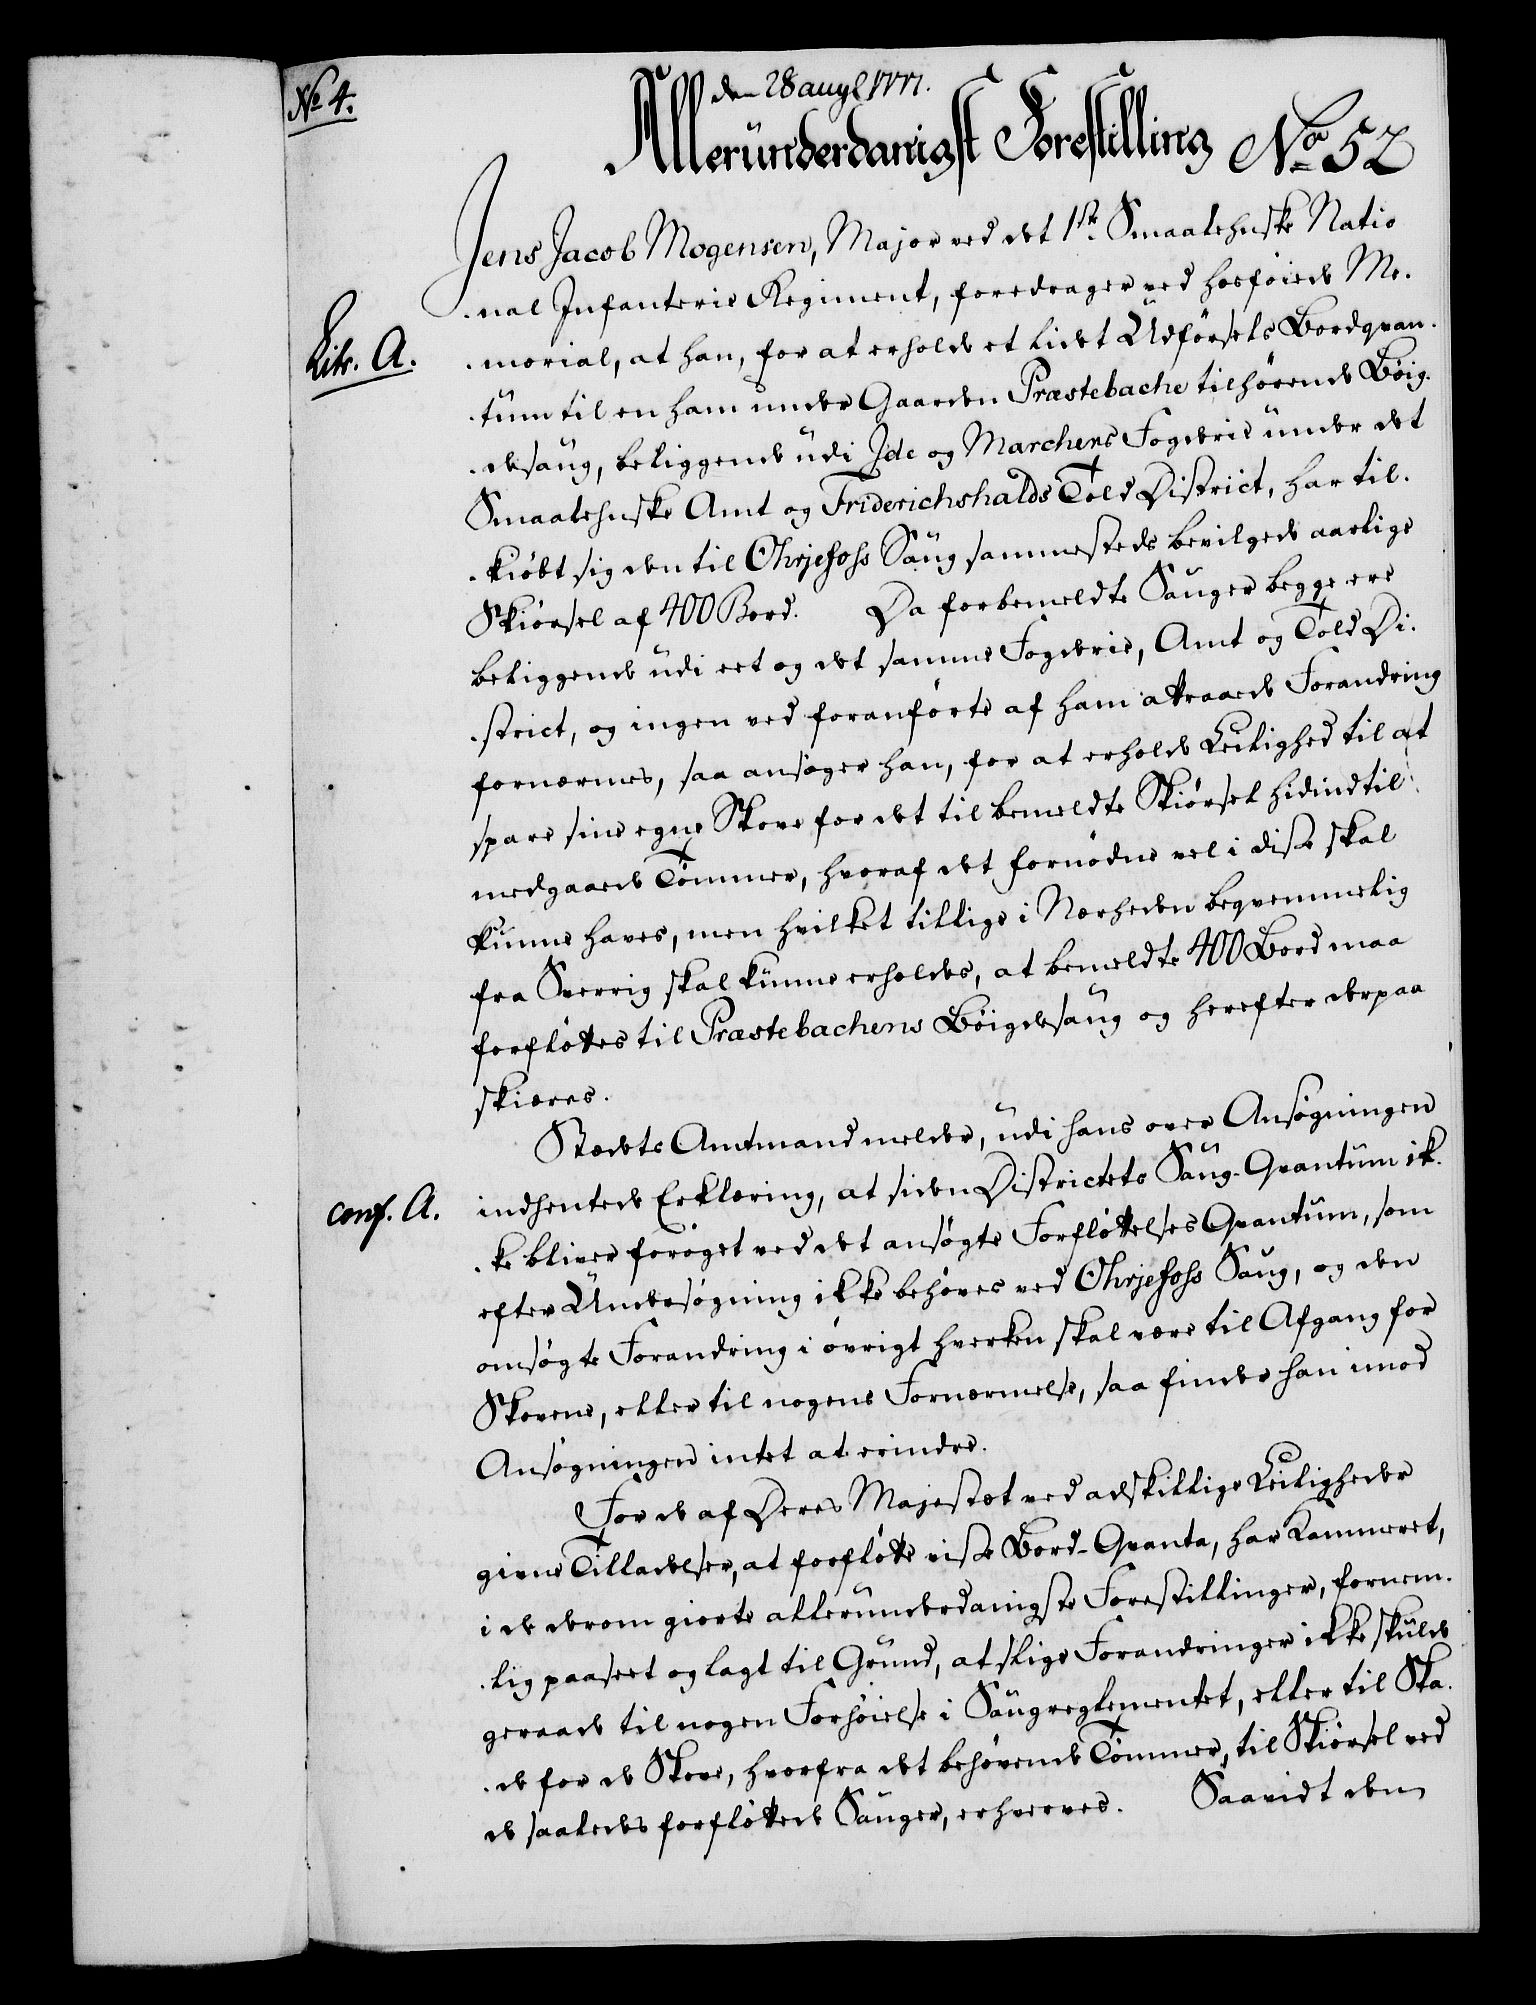 No 4.
den 28 augl 1777.
Alleründerdanigst Forestilling No 52
Jens Jacob Mogensen, Major ved det 1ste Smaalehnske Natio
nal Infanterie Regiment, foredrager ved hosføiede Me-
Litr. A.
morial, at han, for at erholde et lidet Udførsels Bordqvan-
tum til en ham under Gaarden Præstebache tilhørende Bøig-
desaug, beliggende udi Ide og Marchens Fogderie under det
Smaalehnske Amt og Friderichshalds Told District, har til-
kiøbt sig den til Ohrjefoss Saug sammesteds bevilgede aarlige
Skiørsel af 400 Bord. Da forbemeldte Sauger begge ere
beliggende udi eet og det samme Fogderie, Amt og Told Di-
strict, og ingen ved foranførte af ham attraaede Forandring
fornærmes, saa ansøger han, for at erholde Leilighed til at
spare sine egne Skove for det til bemeldte Skiørsel hidindtil
medgaaede Tømmer, hvoraf det fornødne vel i disse skal
kunne haves, men hvilket tillige i Nærheden beqvemmelig
fra Sverrig skal kunne erholdes, at bemeldte 400 Bord maa
forfløttes til Præstebachens Bøigdesaug og herefter derpaa
skiæres.
Stædets Amtmand melder, udi hans over Ansøgningen
conf. A.
indhentede Erklæring, at siden Districtets Saug-Qvantum ik-
ke bliver forøget ved det ansøgte Forfløttelses Qvantum, som
efter Undersøgning ikke behøves ved Ohrjefoss Saug, og den
omsøgte Forandring i øvrigt hverken skal være til Afgang for
Skovene, eller til nogens Fornærmelse, saa finder han imod
Ansøgningen intet at erindre.
For de af Deres Majestæt ved adskillige Leiligheder
givne Tilladelser, at forfløtte visse Bord-Qvanta, har Kammeret,
i de derom giorte allerunderdanigste Forestillinger, fornem-
lig paaseet og lagt til Grund, at slige Forandringer ikke skulde
geraade til nogen Forhøielse i Saugreglementet, eller til Ska-
de for de Skove, hvorfra det behøvende Tømmer, til Skiørsel ved
de saaledes forfløttede Sauger, erhverves. Saavidt den